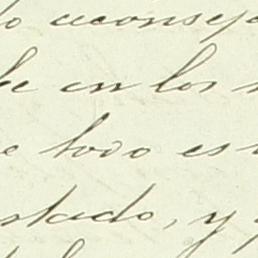 lo aconseja
be en los
e todo es
stado, y